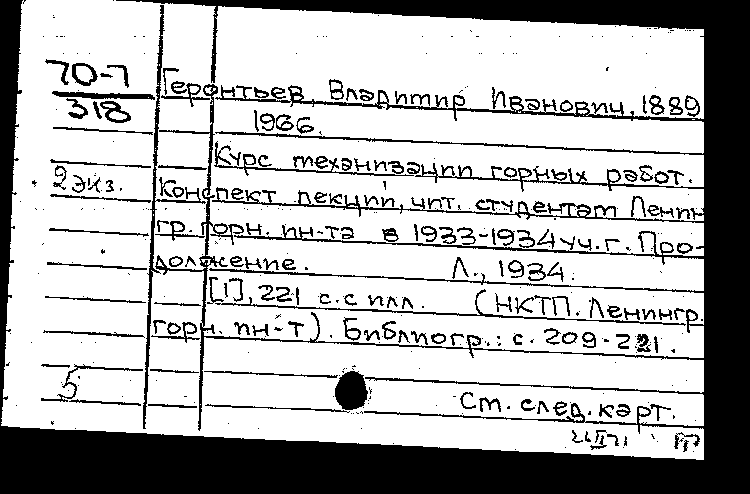 70-7
318
Геронтьев, Владимир Иванович, 1889
1936.
Курс механизации горных работ.
2 экз.
Конспект лекций, чит. студентам Ленин
гр. горн. ин-та в 1933-1934 уч. г. Про-
должение. Л., 1934.
[1], 221 с. с илл. (НКТП. Ленингр.
горн. ин-т). Библиогр.: с. 209-221.
5
См. след. карт.